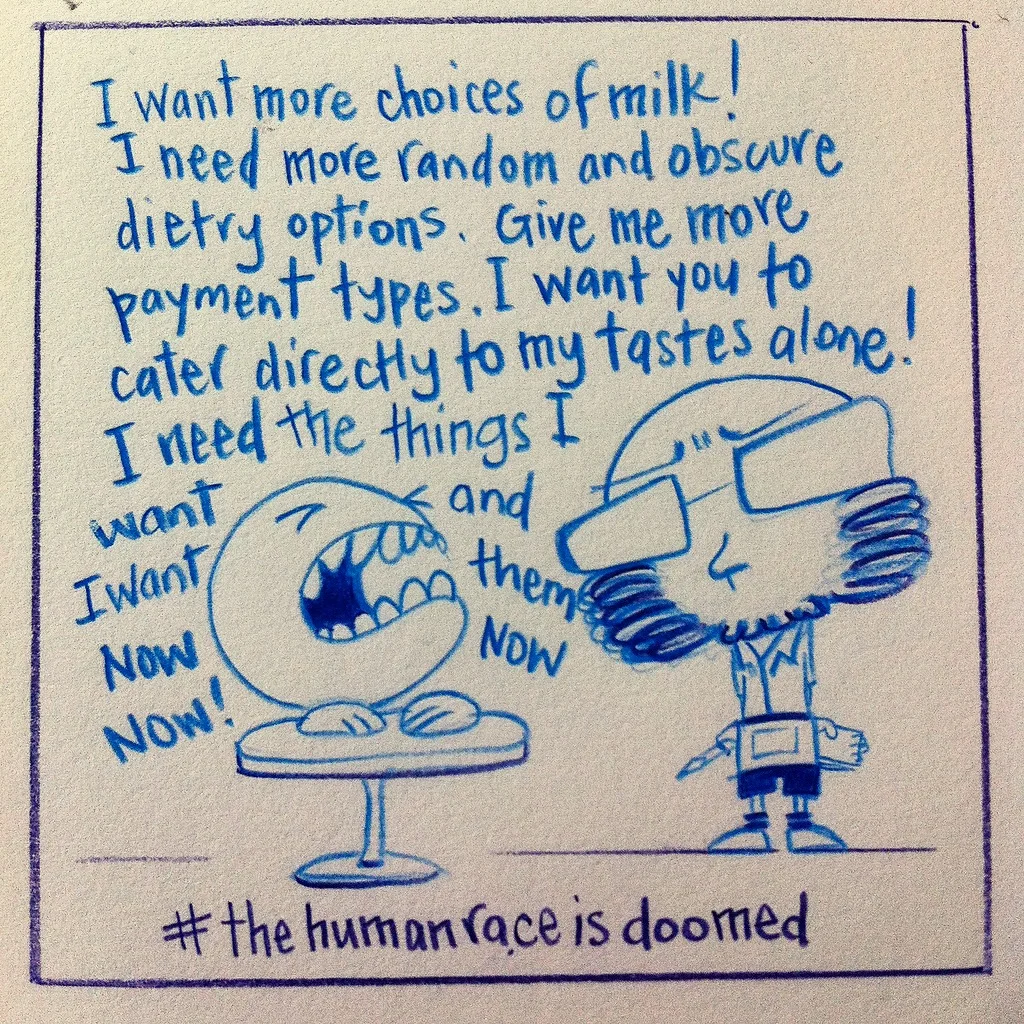 I want more choices of milk!
I need more random and obscure
dietry options. Give me more
payment types. I want you to
cater directly to my tastes alone!
I need the things I
want and
I want them
Now Now
Now!
#thehumanraceisdoomed